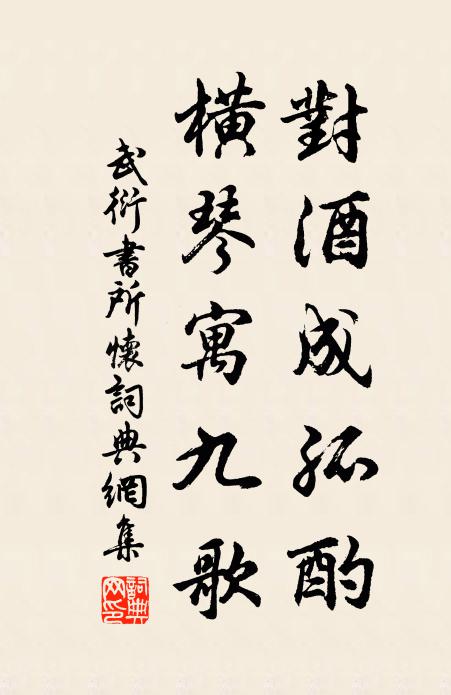 對酒成孤酌
橫琴寓九歌
武衍書所懷詞典網集
詞典網印